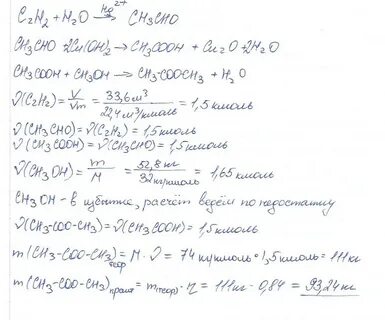 C₂H₂ + H₂O —Hg²⁺→ CH₃CHO
CH₃CHO + 2Cu(OH)₂ → CH₃COOH + Cu₂O + 2H₂O
CH₃COOH + CH₃OH → CH₃-COO-CH₃ + H₂O
ν(C₂H₂) = V/Vm = 33,6 м³ / 22,4 м³/кмоль = 1,5 кмоль
ν(CH₃CHO) = ν(C₂H₂) = 1,5 кмоль
ν(CH₃COOH) = ν(CH₃CHO) = 1,5 кмоль
ν(CH₃OH) = m/M = 52,8 кг / 32 кг/кмоль = 1,65 кмоль
CH₃OH - в избытке, расчёт ведём по недостатку
ν(CH₃-COO-CH₃) = ν(CH₃COOH) = 1,5 кмоль
m(CH₃-COO-CH₃)теор = M · ν = 74 кг/кмоль · 1,5 кмоль = 111 кг
m(CH₃-COO-CH₃)практ = m(теор) · η = 111 кг · 0,84 = 93,24 кг